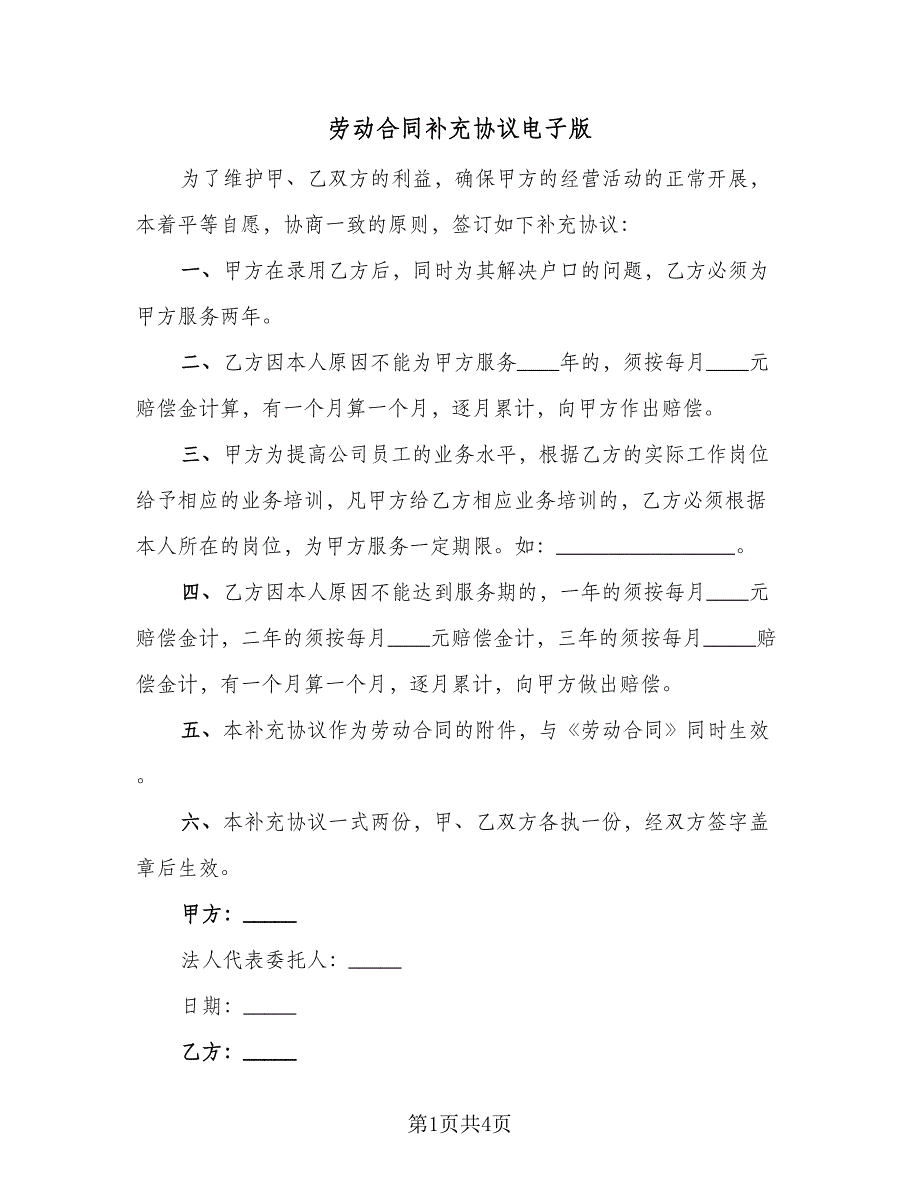 劳动合同补充协议电子版
为了维护甲、乙双方的利益，确保甲方的经营活动的正常开展，
本着平等自愿，协商一致的原则，签订如下补充协议：
一、甲方在录用乙方后，同时为其解决户口的问题，乙方必须为
甲方服务两年。
二、乙方因本人原因不能为甲方服务____年的，须按每月____元
赔偿金计算，有一个月算一个月，逐月累计，向甲方作出赔偿。
三、甲方为提高公司员工的业务水平，根据乙方的实际工作岗位
给予相应的业务培训，凡甲方给乙方相应业务培训的，乙方必须根据
本人所在的岗位，为甲方服务一定期限。如：_________________。
四、乙方因本人原因不能达到服务期的，一年的须按每月____元
赔偿金计，二年的须按每月____元赔偿金计，三年的须按每月_____赔
偿金计，有一个月算一个月，逐月累计，向甲方做出赔偿。
五、本补充协议作为劳动合同的附件，与《劳动合同》同时生效
。
六、本补充协议一式两份，甲、乙双方各执一份，经双方签字盖
章后生效。
甲方：_____
法人代表委托人：_____
日期：_____
乙方：_____
第1页共4页